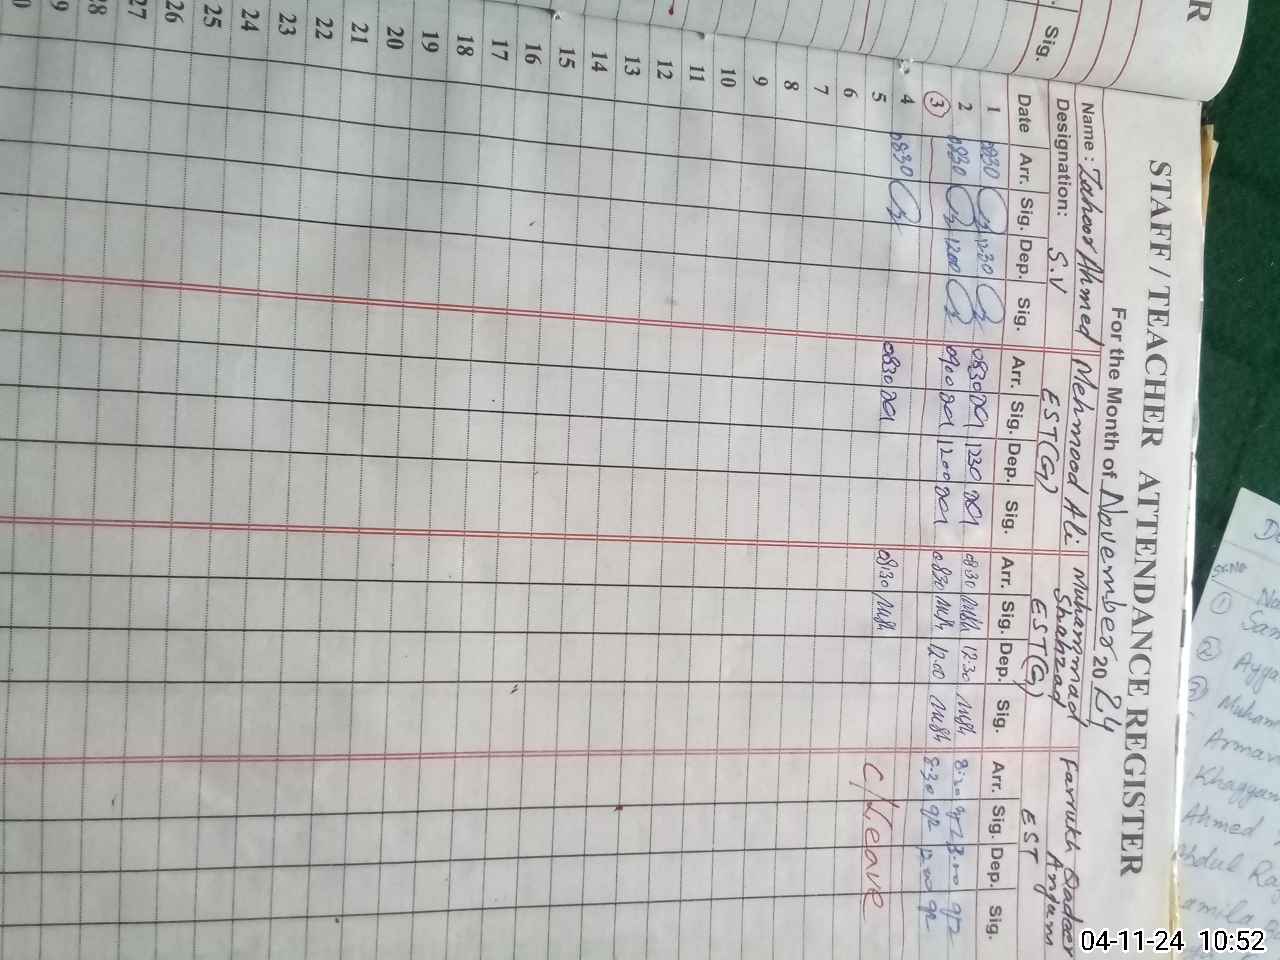 R
Sig.
STAFF / TEACHER ATTENDANCE REGISTER
For the Month of November 2024
Name : Zahoor Ahmed Mehmood Ali Muhammad Shahzad Farrukh Qadeer Anjum
Designation: S.V EST(G) EST(G) EST
Date Arr. Sig. Dep. Sig. Arr. Sig. Dep. Sig. Arr. Sig. Dep. Sig. Arr. Sig. Dep. Sig.
1 0830 1230 0830 1230 0830 1230
2 0830 1200 0900 1200 0830 1200 8:30 1200
3
4 0830 0830 0830 C/Leave
5
6
7
8
9
10
11
12
13
14
15
16
17
18
19
20
21
22
23
24
25
26
27
28
9
0
Sr.No
① San
② Ayya
③ Muham
Arman
Khayyam
Ahmed
Abdul Ra
amila
04-11-24 10:52